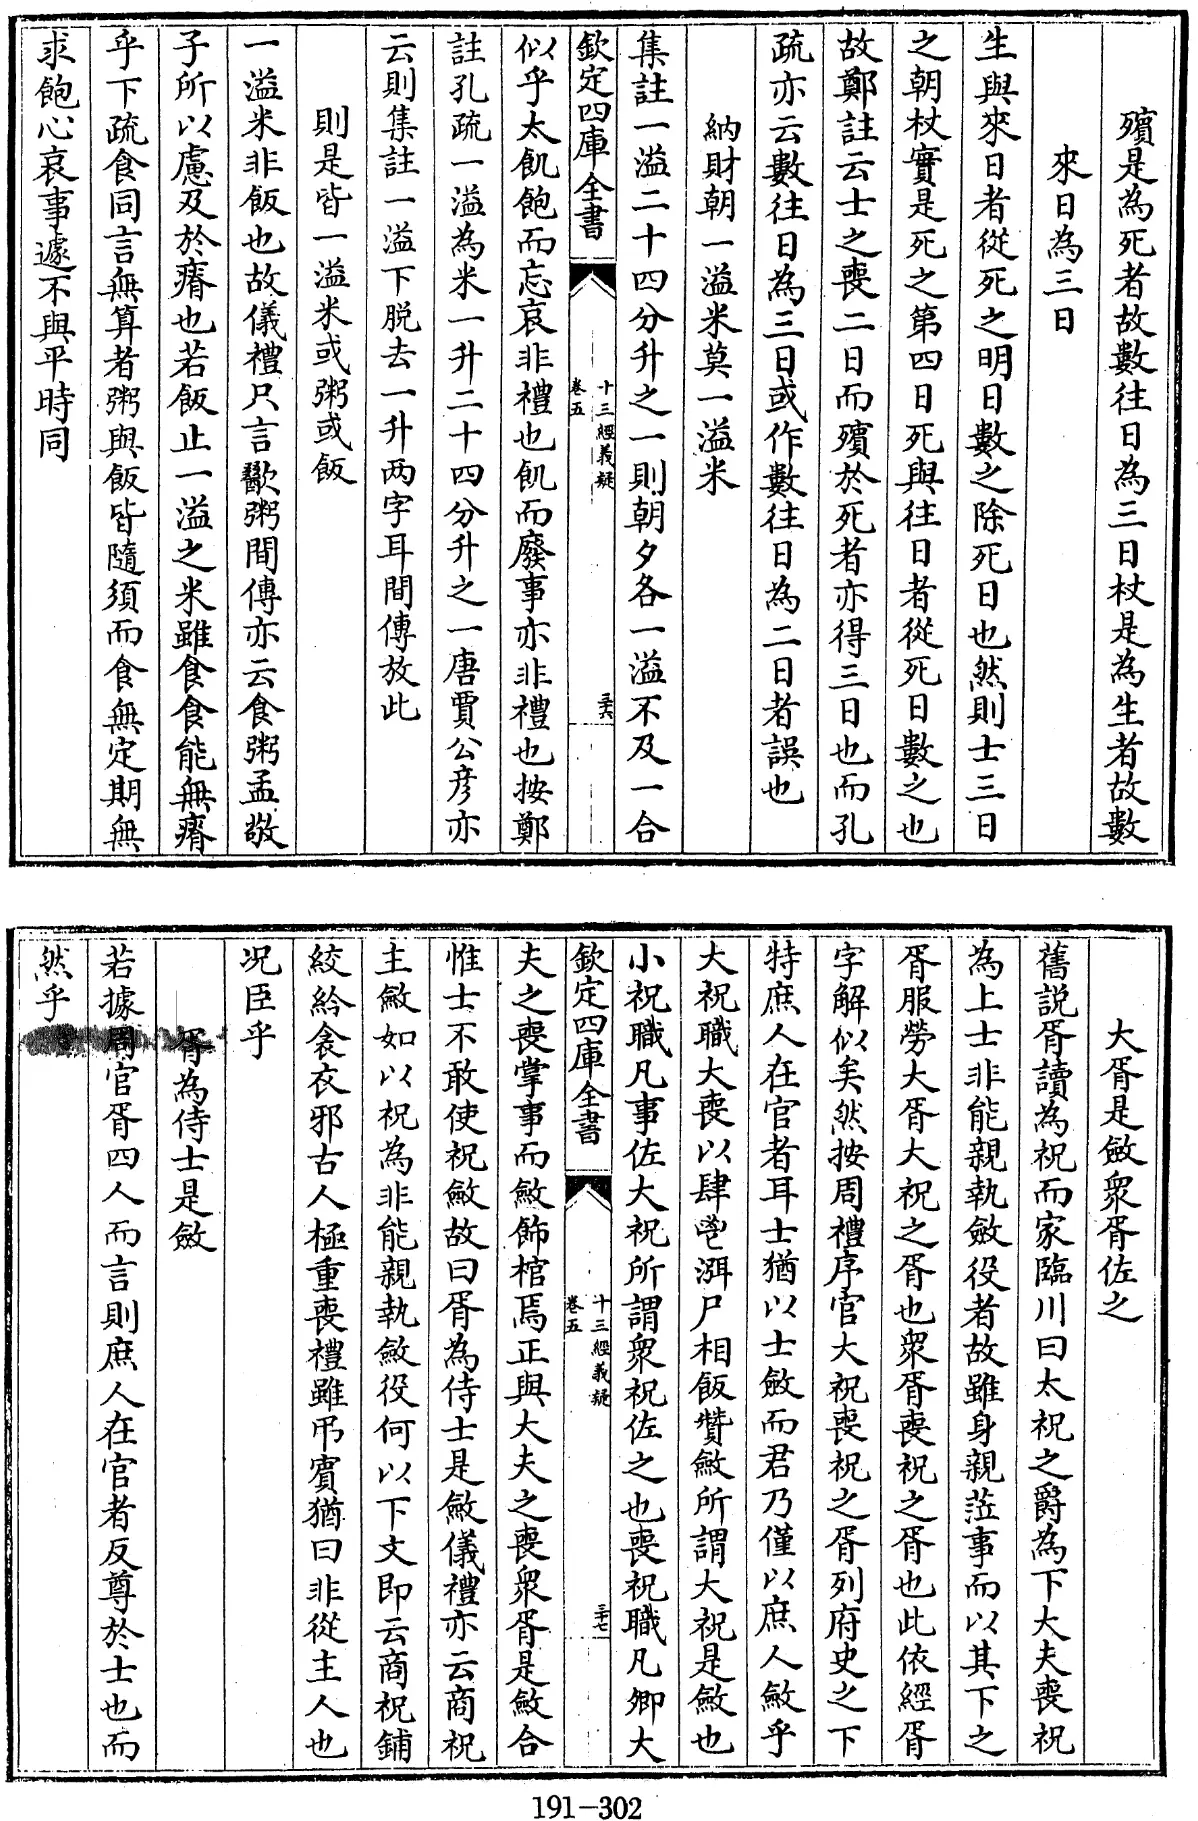 殯是為死者故數往日為三日杖是為生者故數
來日為三日
生與來日者從死之明日數之除死日也然則士三日
之朝杖實是死之第四日死與往日者從死日數之也
故鄭註云士之喪二日而殯於死者亦得三日也而孔
疏亦云數往日為三日或作數往日為二日者誤也
納財朝一溢米莫一溢米
集註一溢二十四分升之一則朝夕各一溢不及一合
欽定四庫全書
十三經義疑
卷五
三六
似乎太飢飽而忘哀非禮也飢而廢事亦非禮也按鄭
註孔疏一溢為米一升二十四分升之一唐賈公彦亦
云則集註一溢下脱去一升两字耳間傳放此
則是皆一溢米或粥或飯
一溢米非飯也故儀禮只言歠粥間傳亦云食粥孟敬
子所以慮及於瘠也若飯止一溢之米雖食食能無瘠
乎下疏食同言無算者粥與飯皆隨須而食無定期無
求飽心哀事遽不與平時同
大胥是斂衆胥佐之
舊説胥讀為祝而家臨川曰太祝之爵為下大夫喪祝
為上士非能親執斂役者故雖身親涖事而以其下之
胥服勞大胥大祝之胥也衆胥喪祝之胥也此依經胥
字解似矣然按周禮序官大祝喪祝之胥列府史之下
特庶人在官者耳士猶以士斂而君乃僅以庶人斂乎
大祝職大喪以肆鬯渳尸相飯贊斂所謂大祝是斂也
小祝職凡事佐大祝所謂衆祝佐之也喪祝職凡卿大
欽定四庫全書
十三經義疑
卷五
三七
夫之喪掌事而斂飾棺焉正與大夫之喪衆胥是斂合
惟士不敢使祝斂故曰胥為侍士是斂儀禮亦云商祝
主斂如以祝為非能親執斂役何以下文即云商祝鋪
絞紟衾衣邪古人極重喪禮雖弔賓猶曰非從主人也
况臣乎
胥為侍士是斂
若據周官胥四人而言則庶人在官者反尊於士也而
然乎
191-302